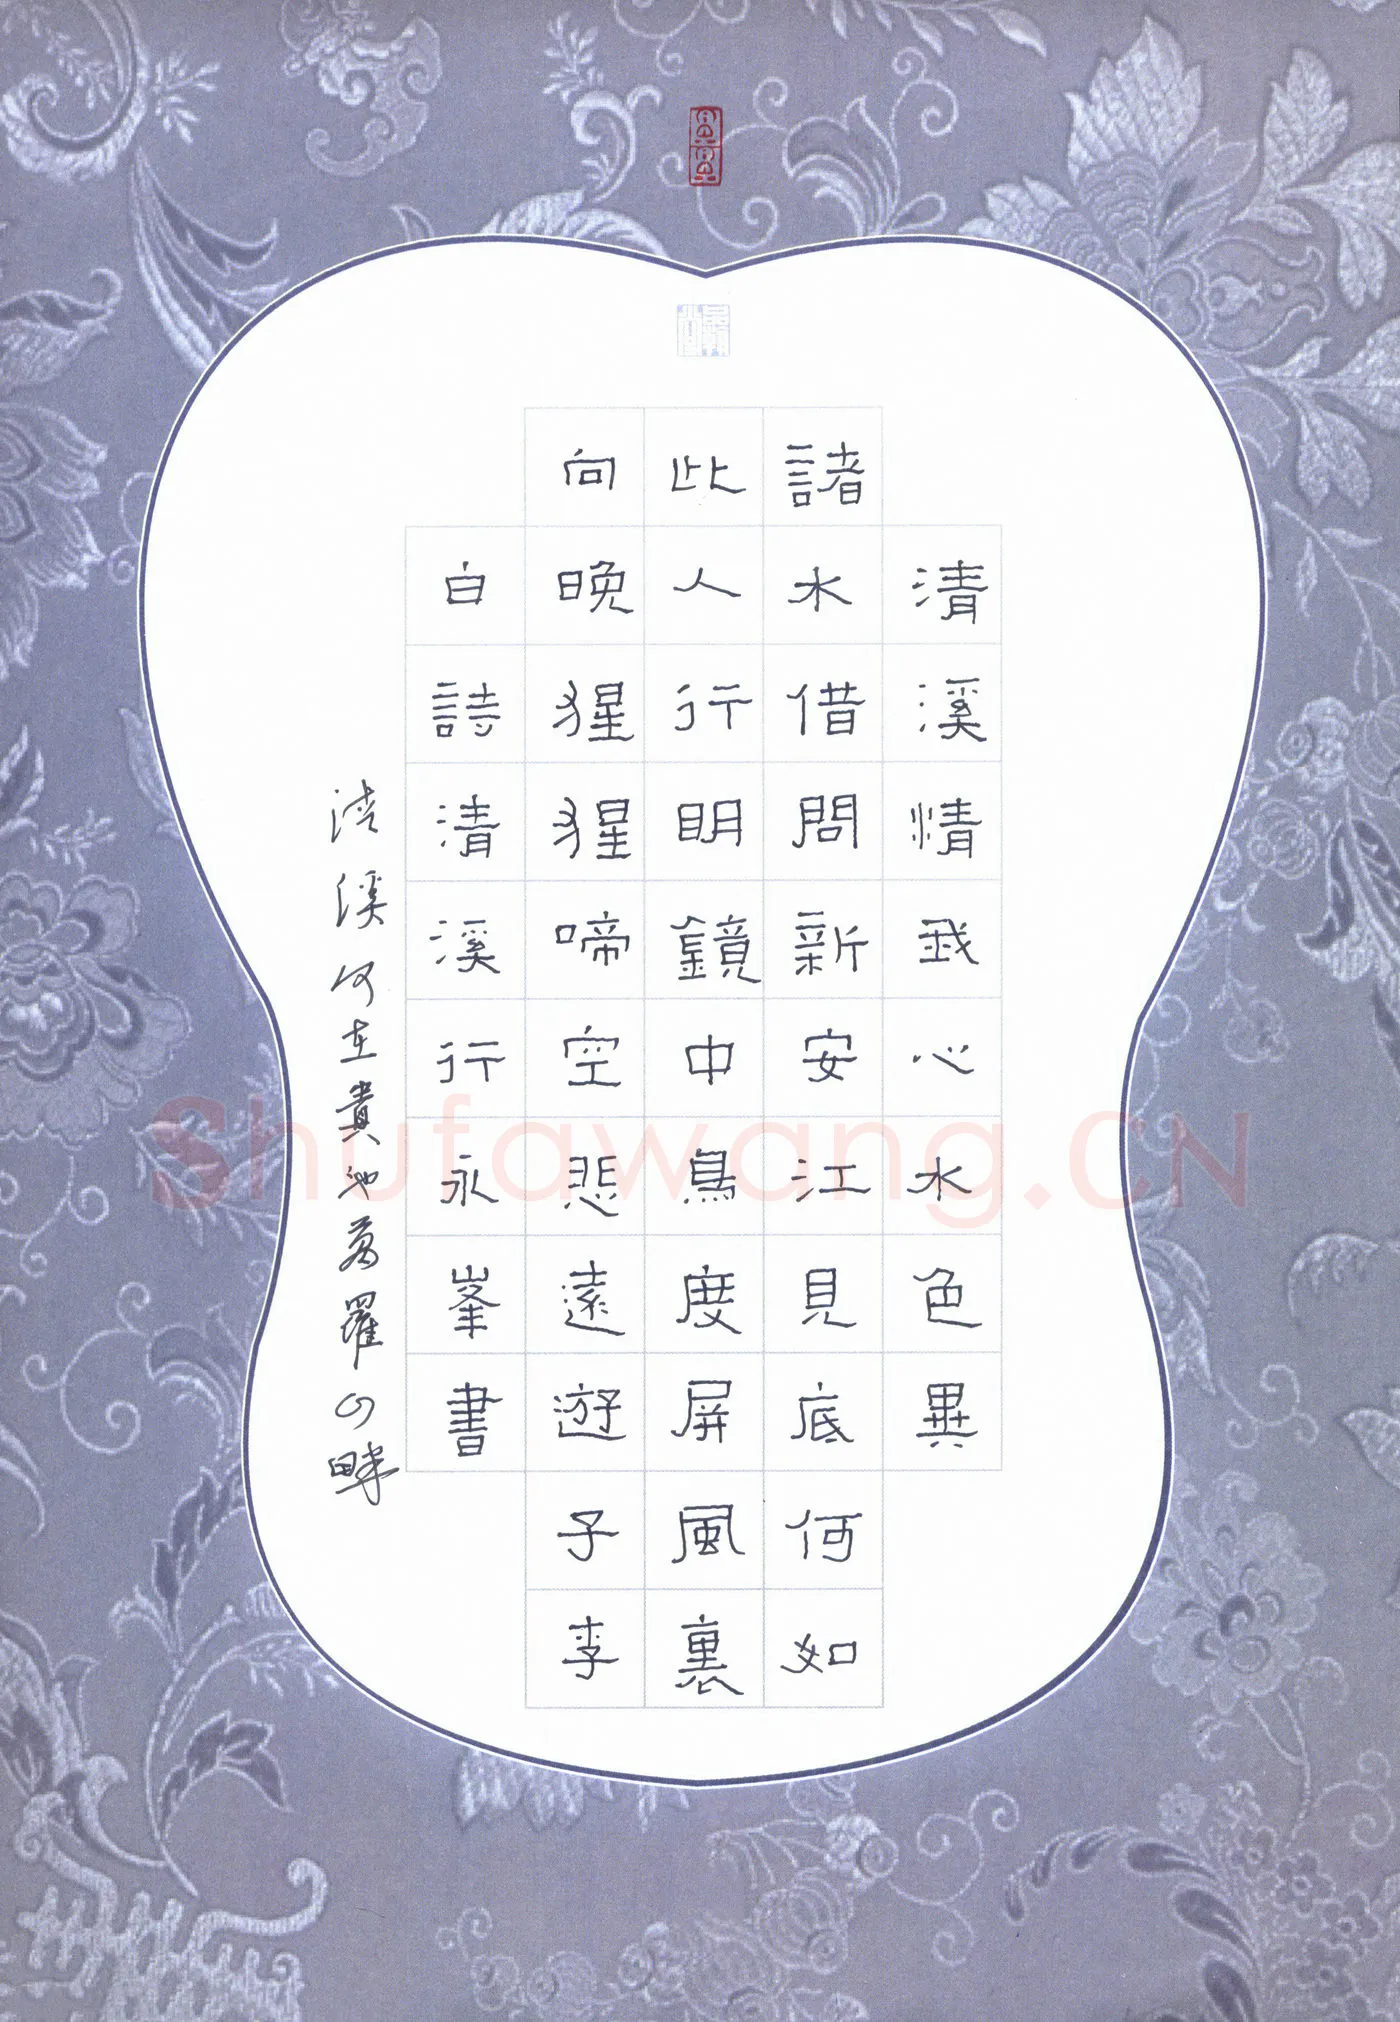 清溪情我心水色異
諸水借問新安江見底何如
此人行明鏡中鳥度屏風裏
向晚猩猩啼空悲遠遊子李
白詩清溪行永峯書
清溪何在貴池萬羅山畔
Shufawang.CN